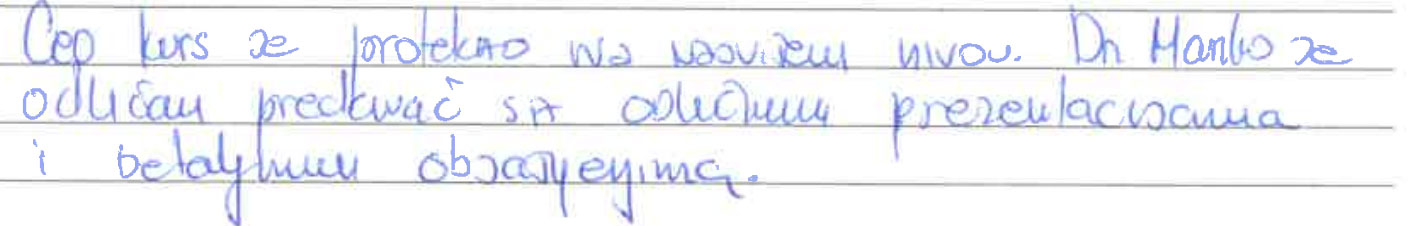 Ceo kurs je protekao na najvišem nivou. Dr Marko je
odličan predavač sa odličnim prezentacijama
i detaljnim objašnjenjima.